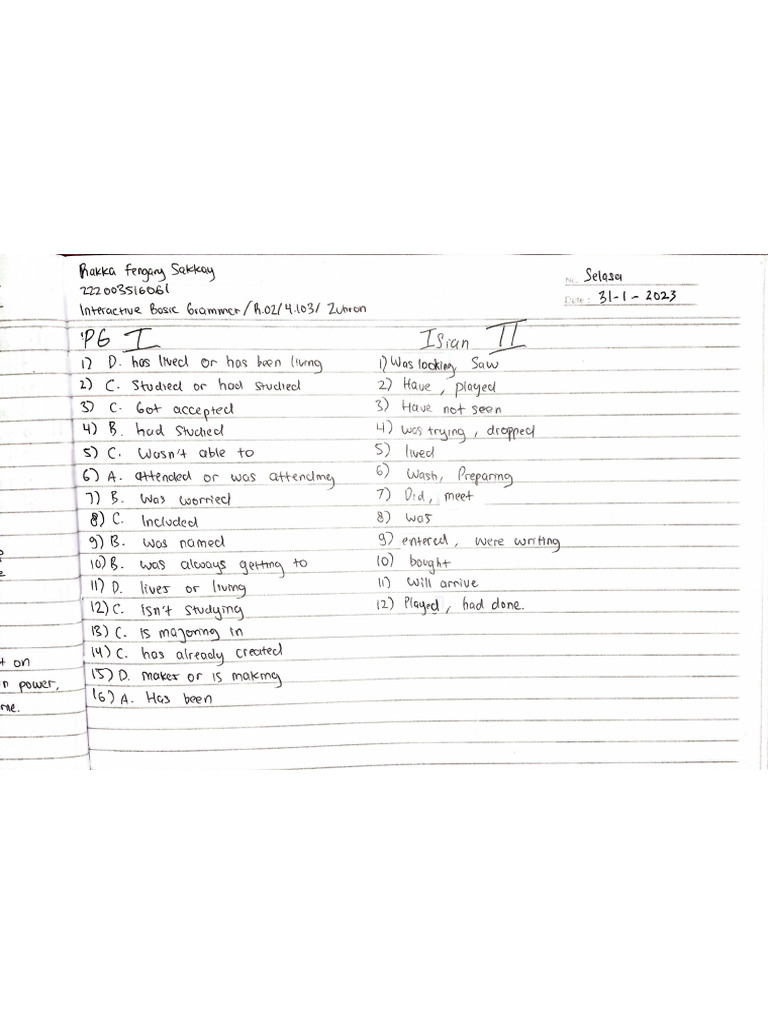 Rakka Fengany Sakkay
222003516061
Interactive Basic Grammer / R.02 / 4.103 / Zuhron
No. Selasa
Date: 31-1-2023
PG I
1) D. has lived or has been living
2) C. Studied or had studied
3) C. Got accepted
4) B. had studied
5) C. Wasn't able to
6) A. attended or was attending
7) B. Was worried
8) C. Included
9) B. was named
10) B. was always getting to
11) D. lives or living
12) C. isn't studying
13) C. is majoring in
14) C. has already created
15) D. makes or is making
16) A. Has been
Isian II
1) Was looking, Saw
2) Have, played
3) Have not seen
4) was trying, dropped
5) lived
6) Wash, Preparing
7) Did, meet
8) was
9) entered, were writing
10) bought
11) Will arrive
12) Played, had done.
t on
n power,
me.